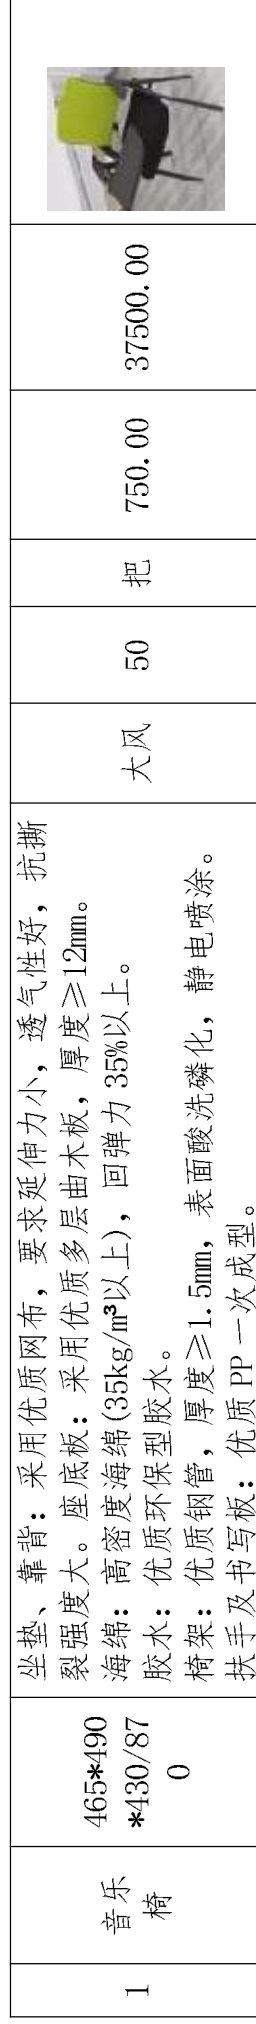 1
音乐
椅
465*490
*430/87
0
坐垫、靠背：采用优质网布，要求延伸力小，透气性好，抗撕
裂强度大。座底板：采用优质多层曲木板，厚度≥12mm。
海绵：高密度海绵(35kg/m³以上)，回弹力 35%以上。
胶水：优质环保型胶水。
椅架：优质钢管，厚度≥1.5mm，表面酸洗磷化，静电喷涂。
扶手及书写板：优质 PP 一次成型。
大风
50
把
750.00
37500.00